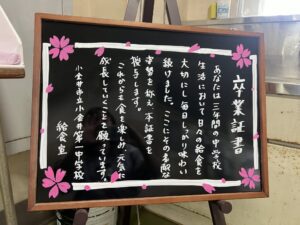 卒業証書
あなたは三年間の中学校
生活において日々の給食を
大切にし毎日しっかり味わい
続けました。ここにその
栄誉を称え本証書を
授与します。
これからも食を楽しみ、元気に
成長していくことを願っています。
小金井市立小金井第一中学校
給食室